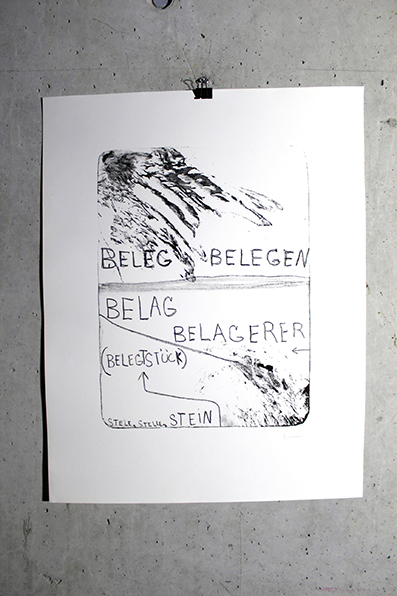 BELEG BELEGEN
BELAG
BELAGERER
(BELEGTSTÜCK)
STELE, STELLE, STEIN